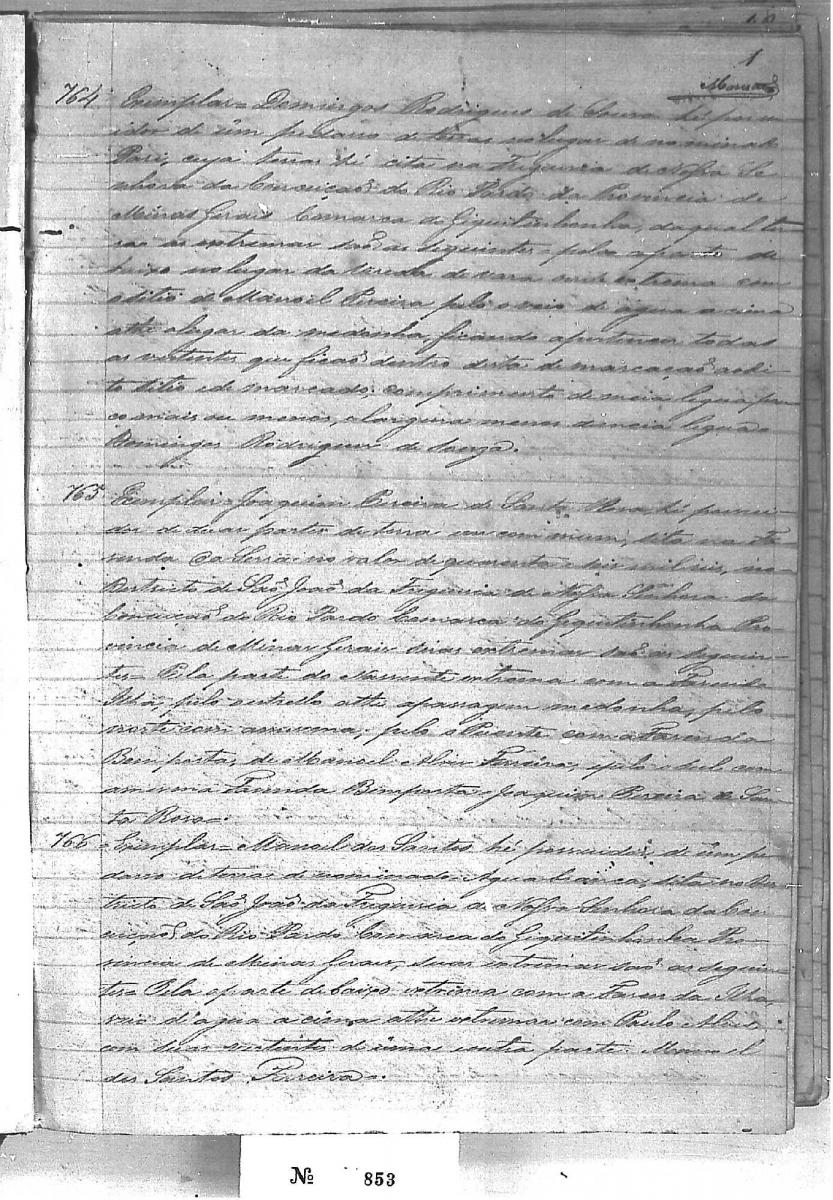 1
764 Exemplar = Domingos Rodrigues de Souza hé possu-
idor de úm pedasso de terras no lugar de nominado
Pari, cuja terras hé cita na Freguezia de Nossa Se-
nhora da Conceicaõ do Rio Pardo, da Provincia de
Minas Gerais Comarca do Giquitinhonha, da qual ter-
ras as extremas saõ as seguintes = pela aparte de
baixo no lugar da vereda de vara extrema com
o citio de Manoel Pereira pelo o veio de agua a cima
athe a lugar da medonha, ficando apertença todas
as vertentes que ficaõ dentro desta demarcaçaõ ao di-
to citio e demarcado, comprimento de meia legua pou-
co mais ou menos, e largura menos de meia legua =
Domingos Rodrigues de Souza.
765 Exemplar = Joaquim Pereira de Santa Rosa hé possui-
dor de duas partes de terra em commum, sita na Fa-
zenda da Serra no valor de quarenta e seis mil reis, no
Destricto de Saõ Joaõ da Freguezia de Nossa Senhora da
Conceicaõ do Rio Pardo Comarca do Giquitinhonha Pro-
vincia de Minas Gerais suas extremas saõ as seguin-
tes = Pela parte do Nascente extrema com a Fazenda
Ilha, pelo athe apassagem medonha, pelo
norte com a mesma, pelo o Puente com a Fazenda
Bomposta, de Manoel Alves Ferreira, e pelo o Sul com
a mesma Fazenda Bomposta = Joaquim Pereira de San-
ta Rosa =.
766 = Exemplar = Manoel dos Santos hé possuidor, de úm pe-
dasso de terras de nominado Agua branca, sita no Des-
tricto de Saõ Joaõ da Freguezia de Nossa Senhora da Con-
ceiçaõ do Rio Pardo Comarca do Giquitinhonha Pro-
vincia de Minas Gerais, suas extremas saõ as seguin-
tes = Pela aparte de baixo extrema com a Fazenda Ilha
veio d'agua a cima athe extremar com Paulo Alves
com suas vertentes de uma e outra parte. Manoel
dos Santos Ferreira =.
№ 853